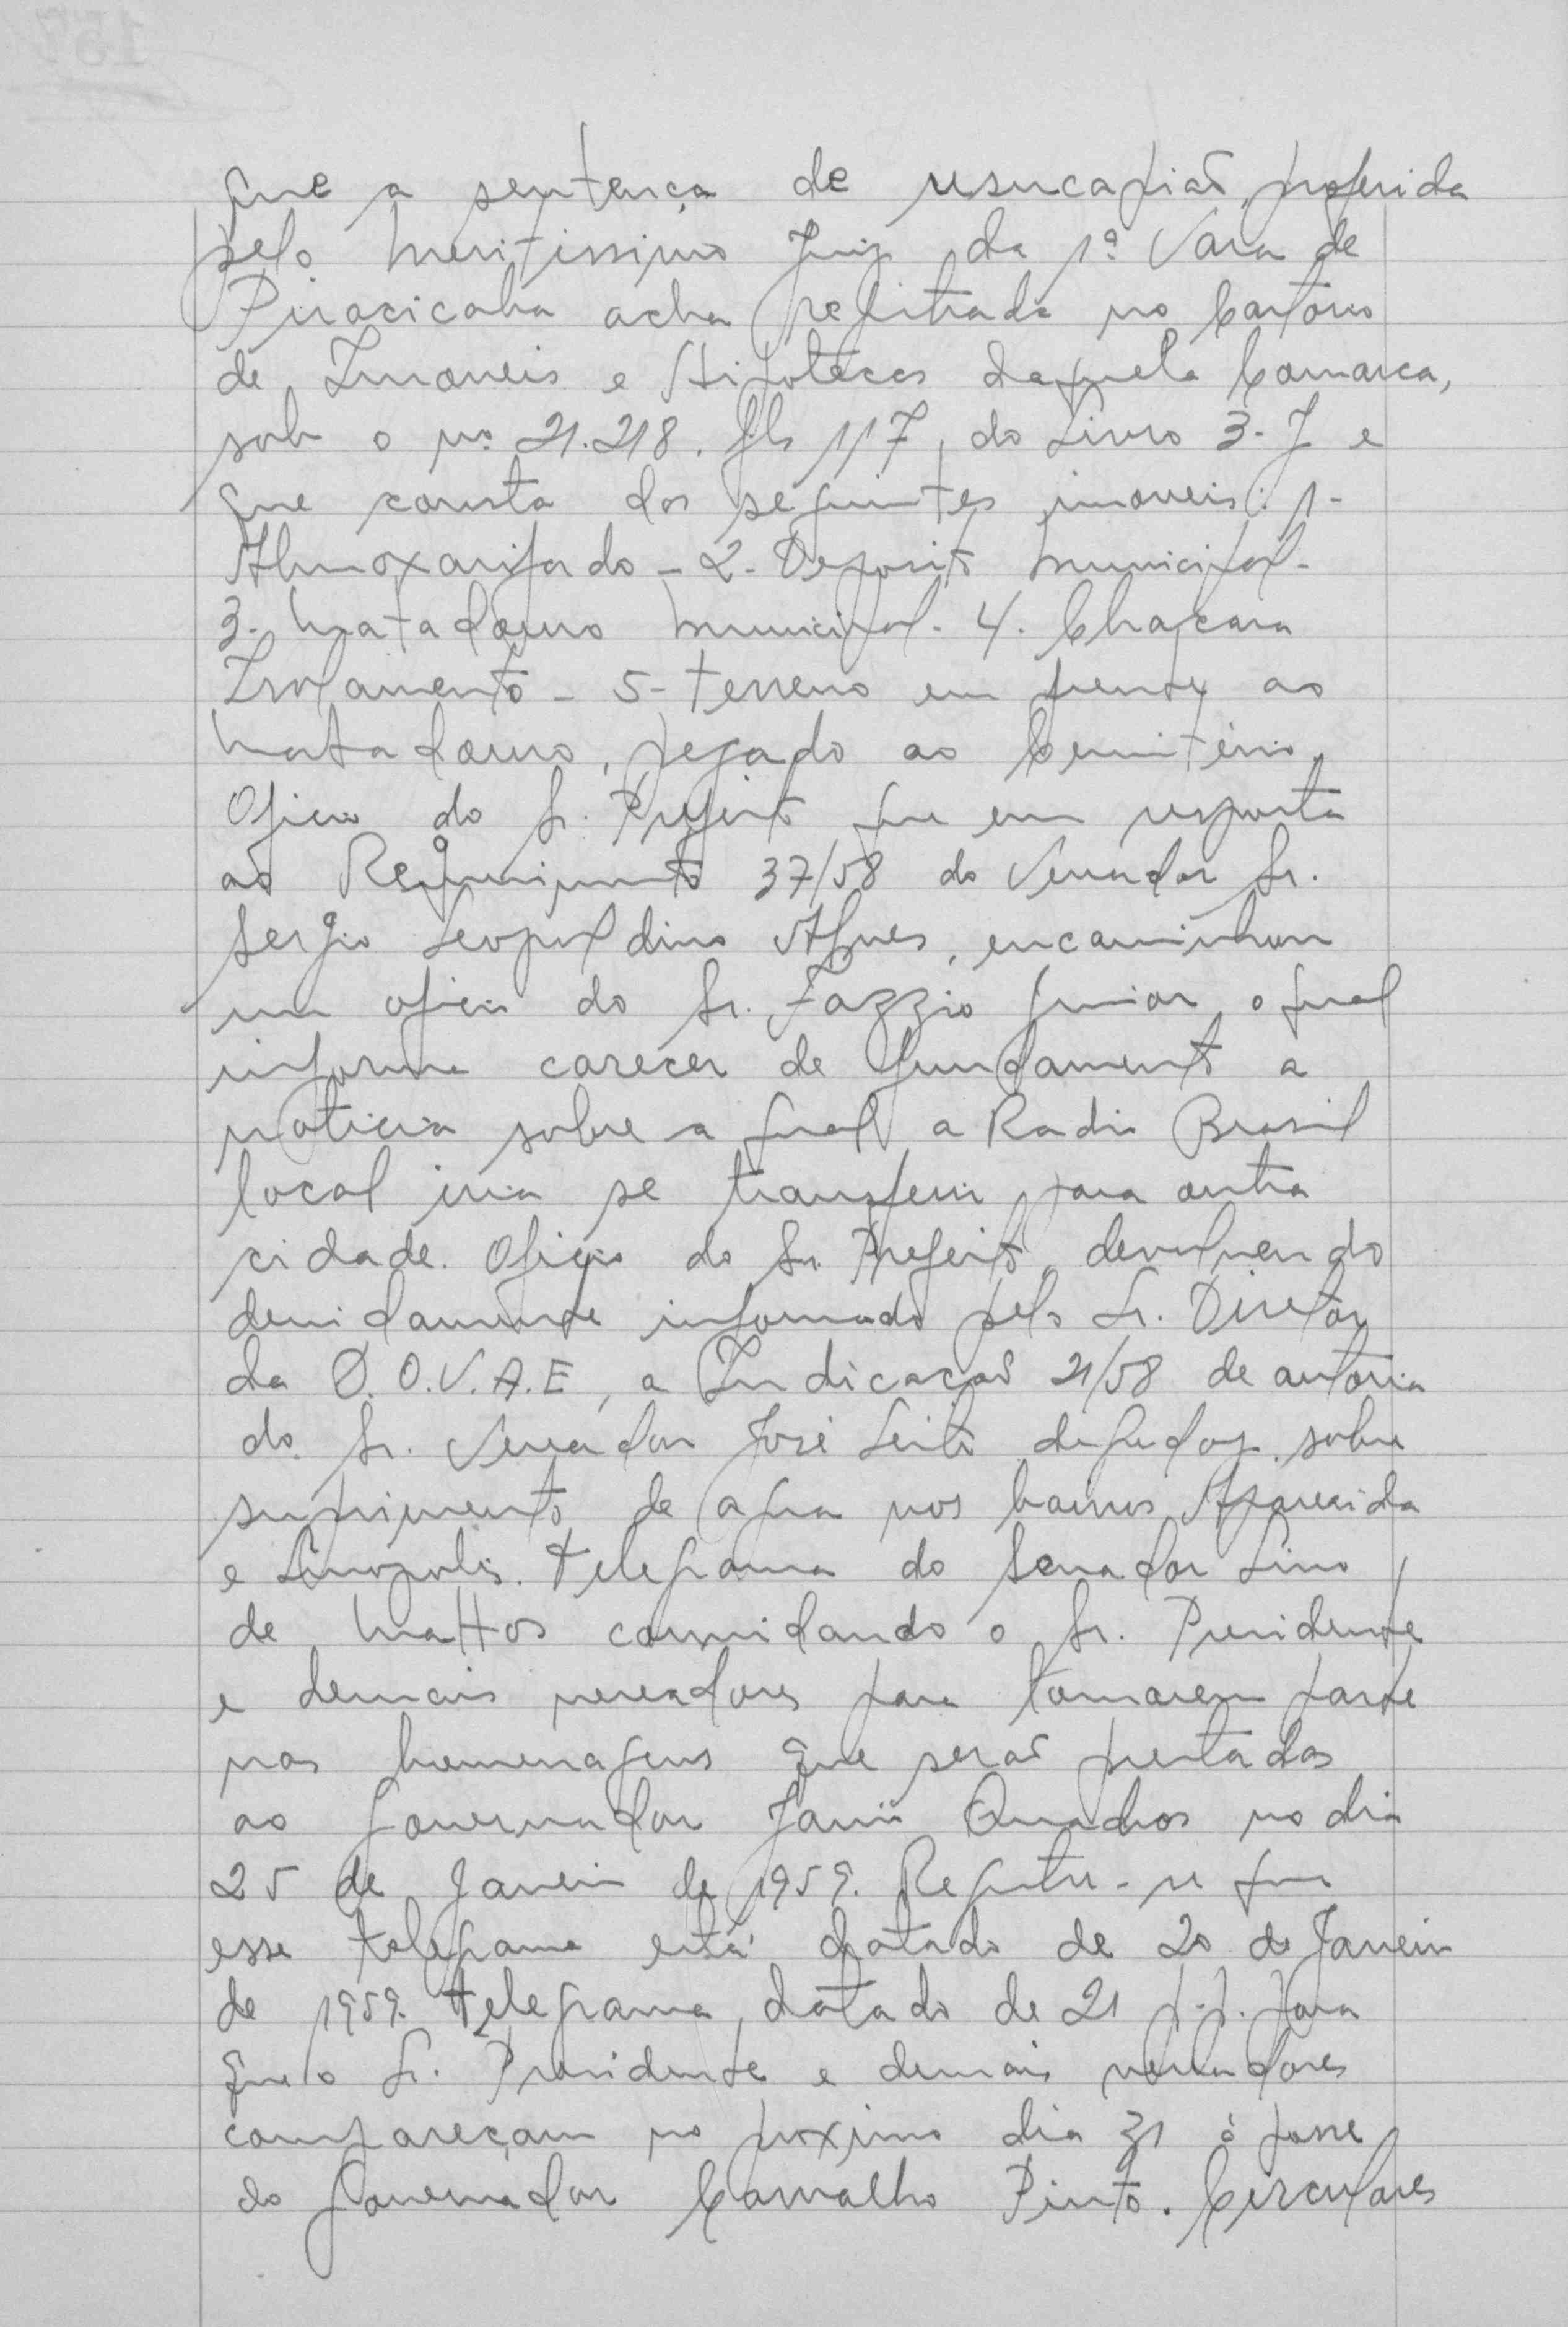 que a sentença de usucapião, proferida
pelo Meritissimo Juiz da 1ª Vara de
Piracicaba acha registrada no Cartório
de Imoveis e Hipotecas daquela Comarca,
sob o nº 21.218. fls 117, do Livro 3-J e
que consta dos seguintes imoveis: 1-
Almoxarifado - 2- Deposito Municipal -
3- Matadouro Municipal - 4. Chacara
Isolamento - 5- terreno em frente ao
Matadouro, pegado ao Cemitério.
Oficio do Sr. Prefeito que em resposta
ao Requerimento 37/58 do Vereador Sr.
Sergio Leopoldino Alves, encaminhou
um oficio do Sr. Fazzio Junior o qual
informa carecer de fundamento a
noticia sobre a qual a Radio Brasil
local iria se transferir para outra
cidade. Oficio do Sr. Prefeito, devolvendo
devidamente informado pelo Sr. Diretor
da D.O.V.A.E, a Indicação 21/58 de autoria
do Sr. Vereador José Leite sobre
suprimento de agua nos bairros Aparecida
e Linopolis. Telegrama do Senador Lino
de Mattos convidando o Sr. Presidente
e demais vereadores para tomarem parte
nas homenagens que serão prestadas
ao Governador Janio Quadros no dia
25 de Janeiro de 1959. Registre-se que
esse telegrama está datado de 20 de Janeiro
de 1959. Telegrama, datado de 21 p.p. para
que o Sr. Presidente e demais vereadores
compareçam no proximo dia 31 à posse
do Governador Carvalho Pinto. Circulares